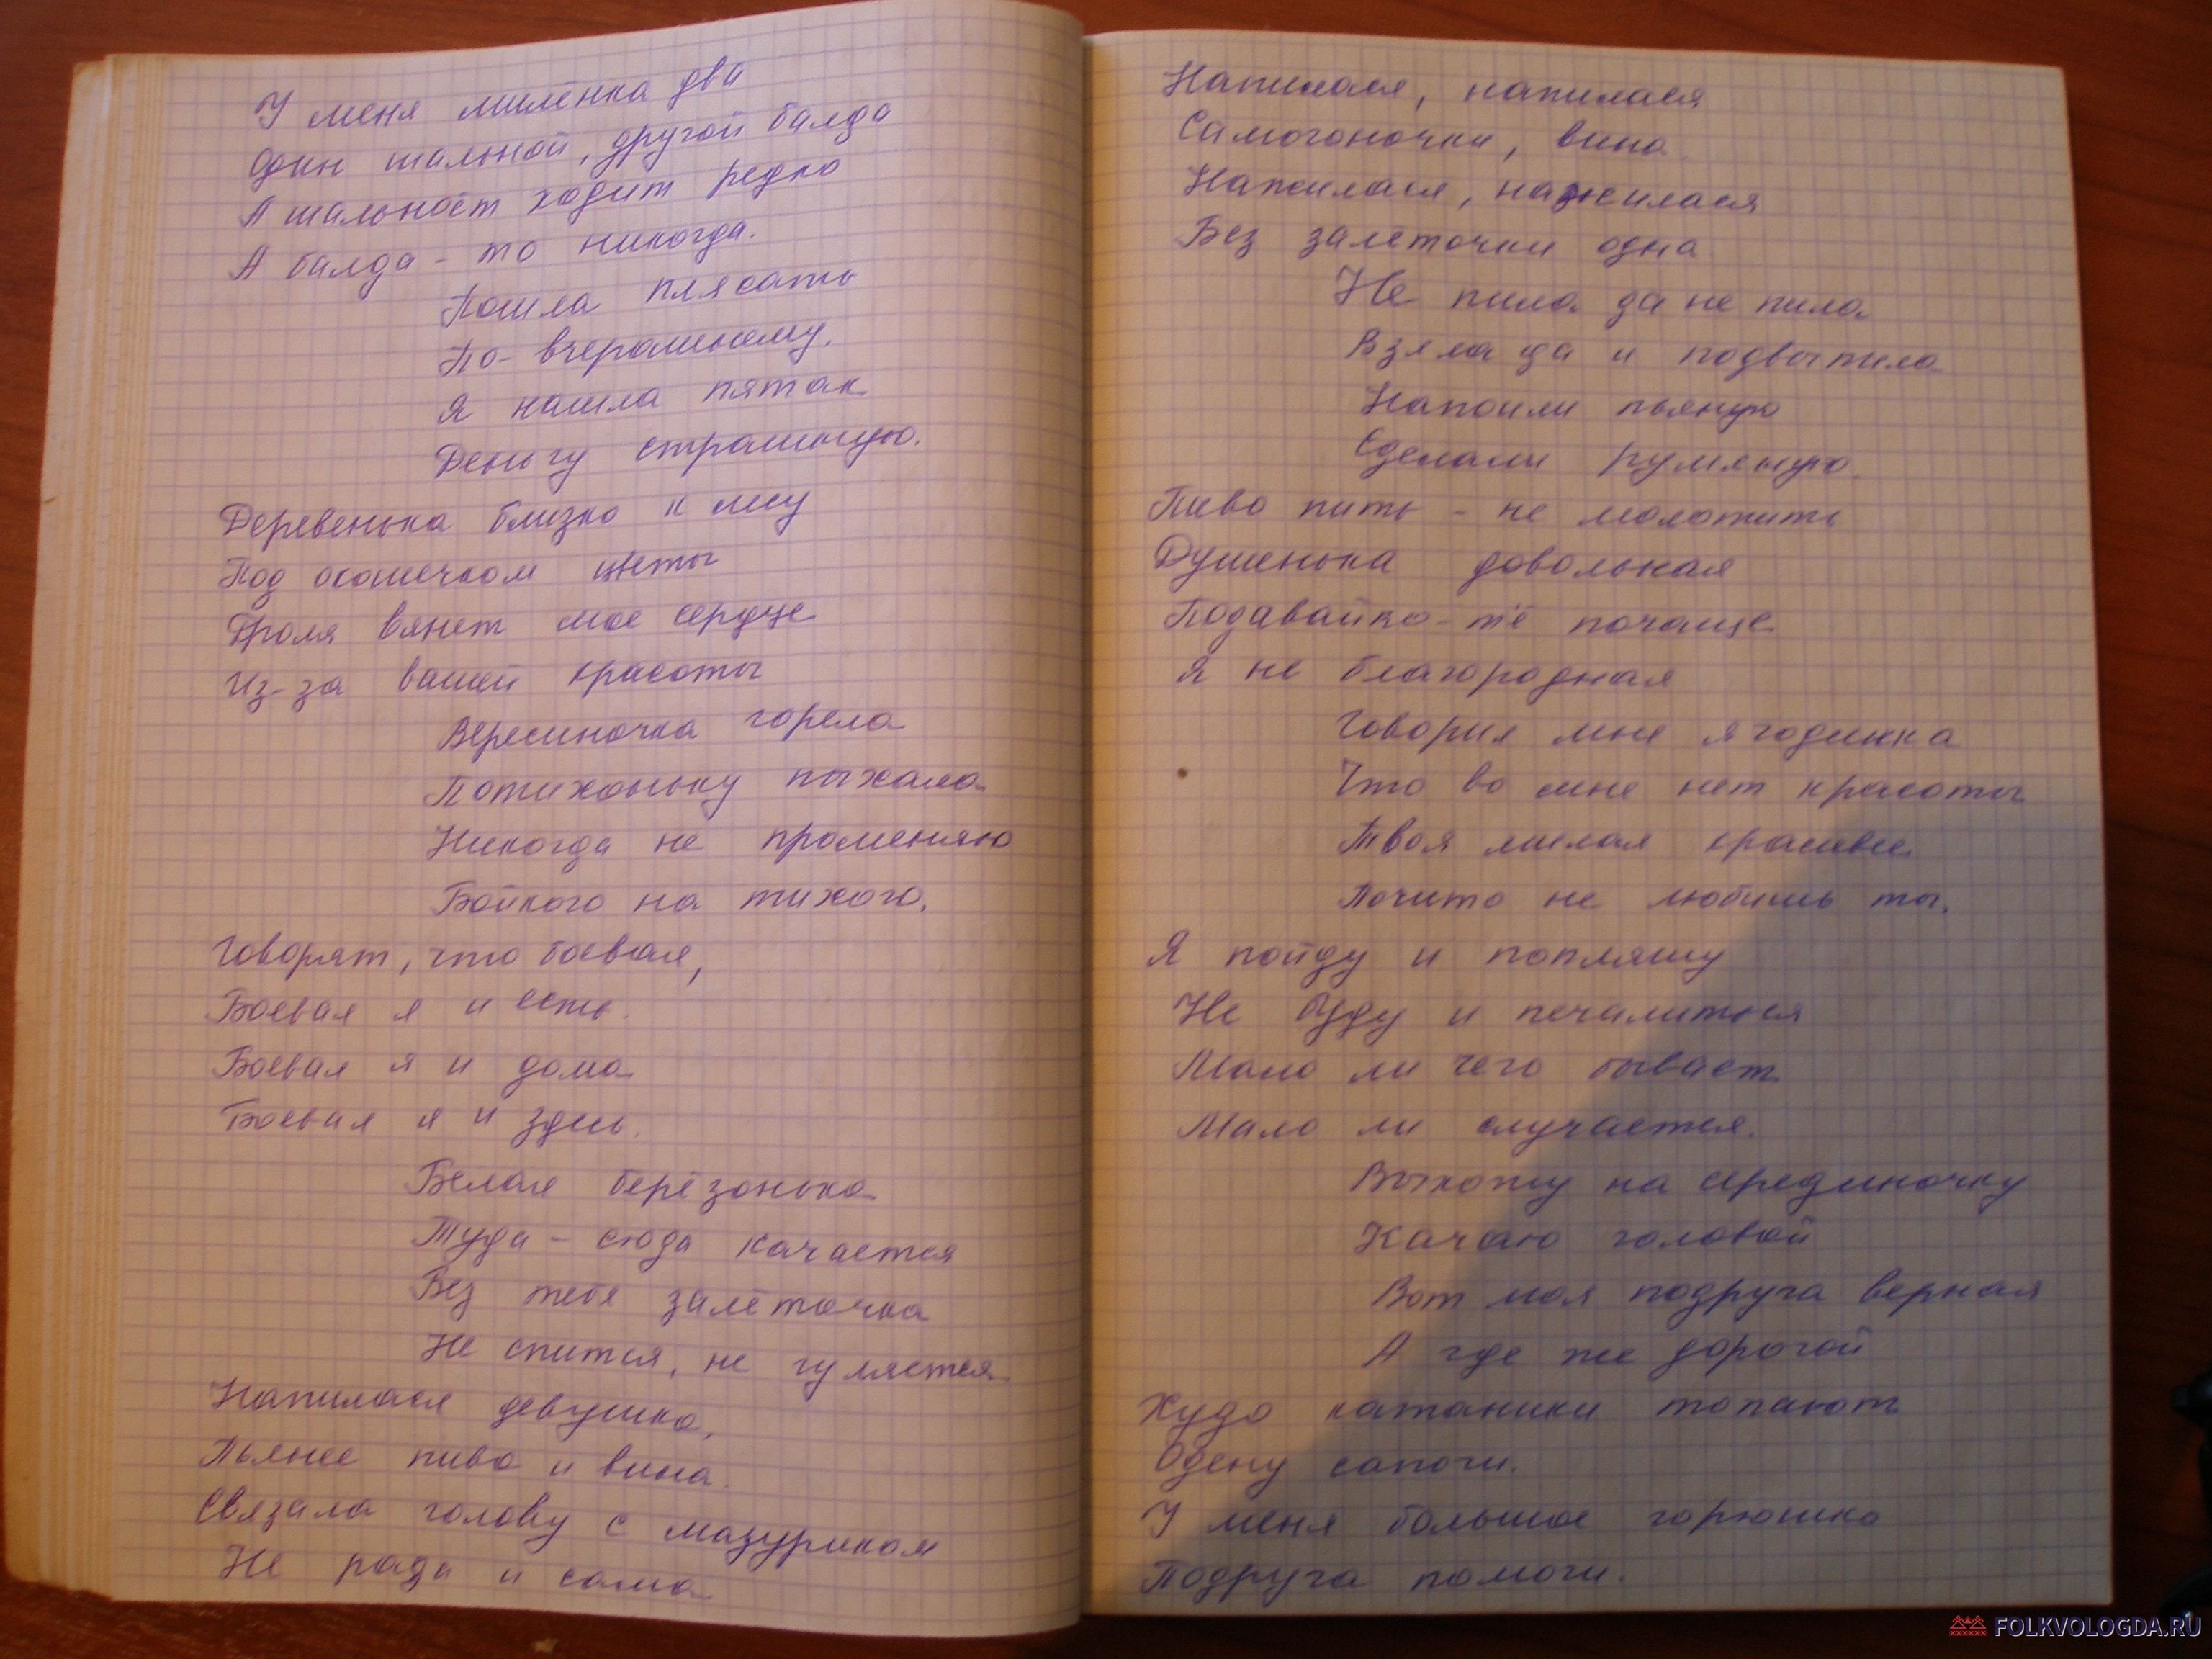 У меня милёнка два
Один шальной, другой балда
А шальноёт ходит редко
А балда - то никогда.
Пошла плясать
По- вчерашнему.
Я нашла пятак
Деньгу страшную.
Деревенька близко к лесу
Под окошечком цветы
Дроля вянет мое сердце
Из-за вашей красоты
Вересиночка горела
Потихоньку пыхала
Никогда не променяю
Бойкого на тихого.
Говорят, что боевая,
Боевая я и есть.
Боевая я и дома
Боевая я и здесь.
Белая берёзонька
Туда - сюда качается
Без тебя залёточка
Не спится, не гуляется
Напилася девушка,
Пьянее пива и вина.
Связала голову с мазуриком
Не рада и сама
Напилася, напилася
Самогоночки, вина
Нажилася, нажилася
Без залёточки одна
Не пила да не пила
Взяла да и подвыпила
Напоили пьяную
Сделали румяную.
Пиво пить - не молотить
Душенька довольная
Подавайко-т'ё почаще
Я не благородная
Говорил мне ягодинка
Что во мне нет красоты
Твоя милая красивее
Почито не любишь ты.
Я пойду и попляшу
Не буду и печалиться
Мало ли чего бывает
Мало ли случается.
Выхожу на серединочку
Качаю головой
Вот моя подруга верная
А где же дорогой
Худо катаники топают
Одену сапоги.
У меня большое горюшко
Подруга помоги.
FOLKVOLOGDA.RU